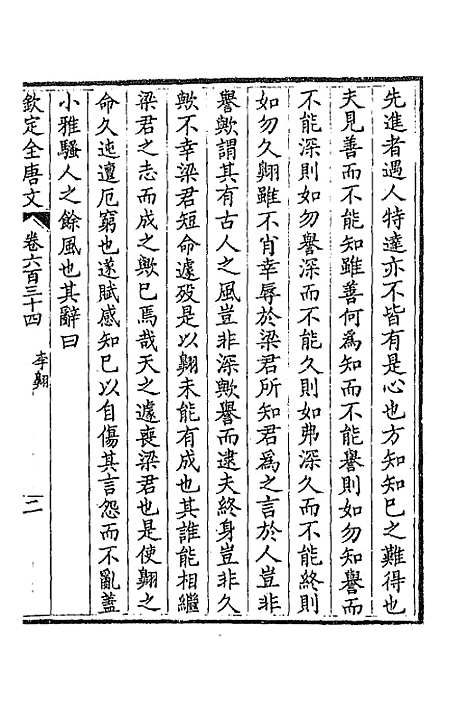 先進者遇人特達亦不皆有是心也方知知已之難得也
夫見善而不能知雖善何為知而不能譽則如勿知譽而
不能深則如勿譽深而不能久則如弗深久而不能終則
如勿久翺雖不肖幸辱於梁君所知君為之言於人豈非
譽歟謂其有古人之風豈非深歟譽而逮夫終身豈非久
歟不幸梁君短命遽歿是以翺未能有成也其誰能相繼
梁君之志而成之歟已焉哉天之遽喪梁君也是使翺之
命久迍邅厄窮也遂賦感知已以自傷其言怨而不亂蓋
小雅騷人之餘風也其辭曰
欽定全唐文
卷六百三十四
李翺
二